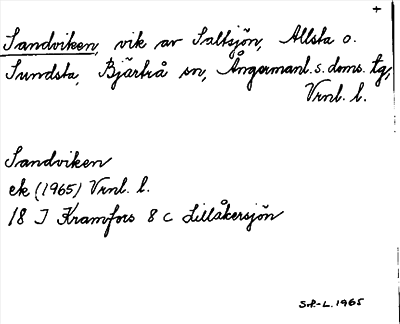 +
Sandviken, vik av Saltsjön, Allsta o.
Sundsta, Bjärtrå sn, Ångermanl. s. doms. tg,
Vrnl. l.
Sandviken
ek (1965) Vrnl. l.
18 I Kramfors 8 c Lillåkersjön
S.P.-L. 1965